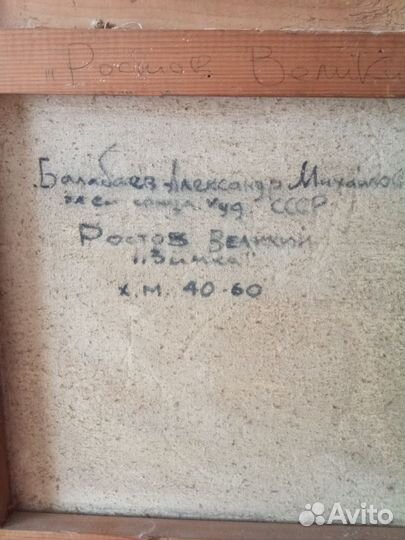 "Ростов Велики
Балабаев Александр Михайлов
член союза худ. СССР
Ростов Великий
"Зимка"
х.м. 40-60
Avito